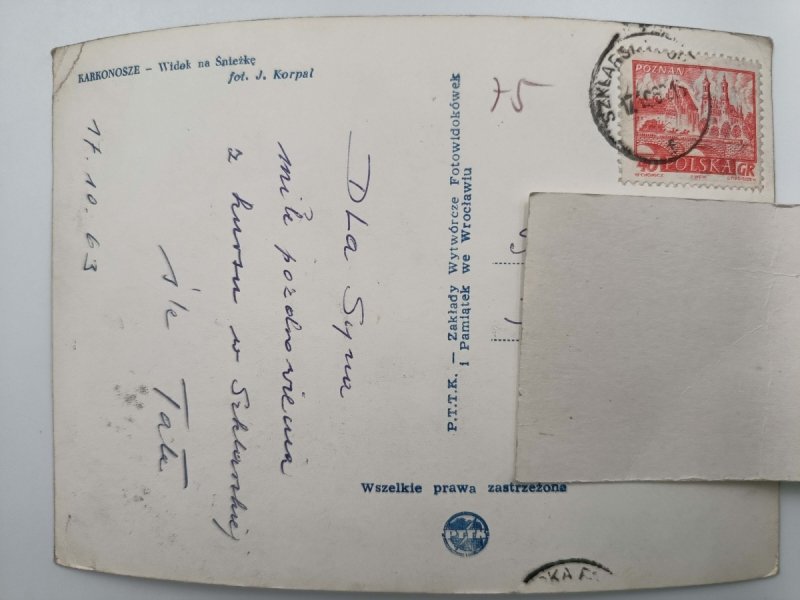 KARKONOSZE – Widok na Śnieżkę
fot. J. Korpal
17.10.63
DLa Syna
miłe pozdrowienia
z kursu w Szklarskiej
śle Tata
P.T.T.K. — Zakłady Wytwórcze Fotowidokówek
i Pamiątek we Wrocławiu
Wszelkie prawa zastrzeżone
PTTK
+5
POZNAŃ
40 POLSKA GR
SZKLARSKA
SKA